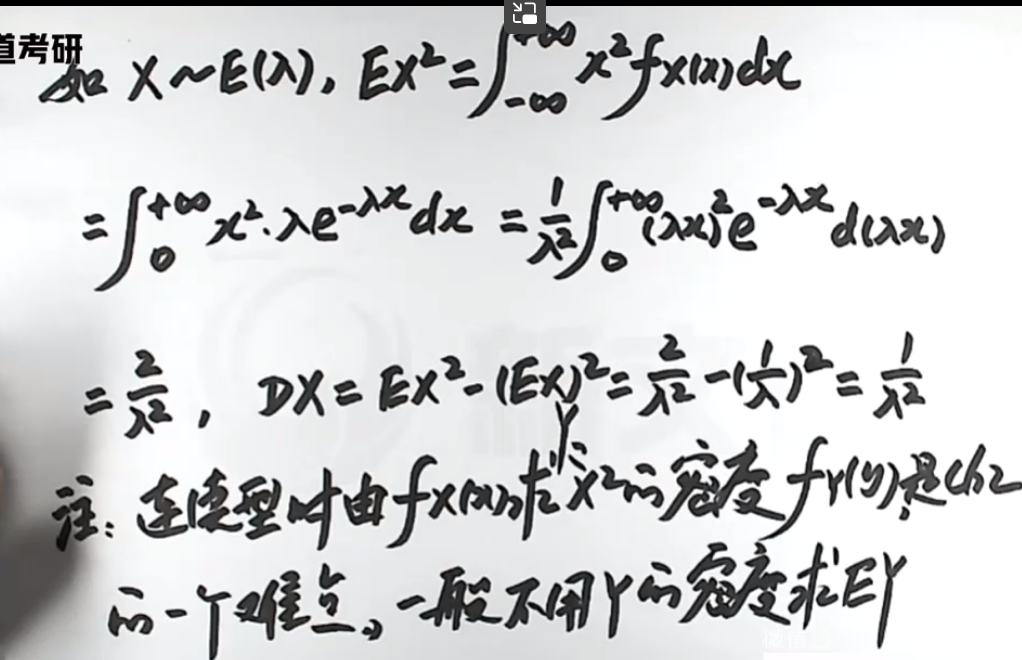 道考研
如 X~E(λ), EX²=∫_{-∞}^{+∞} x²f_X(x)dx
=∫_0^{+∞} x²·λe^{-λx}dx = 1/λ² ∫_0^{+∞} (λx)²e^{-λx}d(λx)
= 2/λ², DX = EX²-(EX)² = 2/λ² - (1/λ)² = 1/λ²
注: 连续型时由f_X(x)求Y=X²的密度f_Y(y),是ch2
的一个难点。一般不用Y的密度求EY